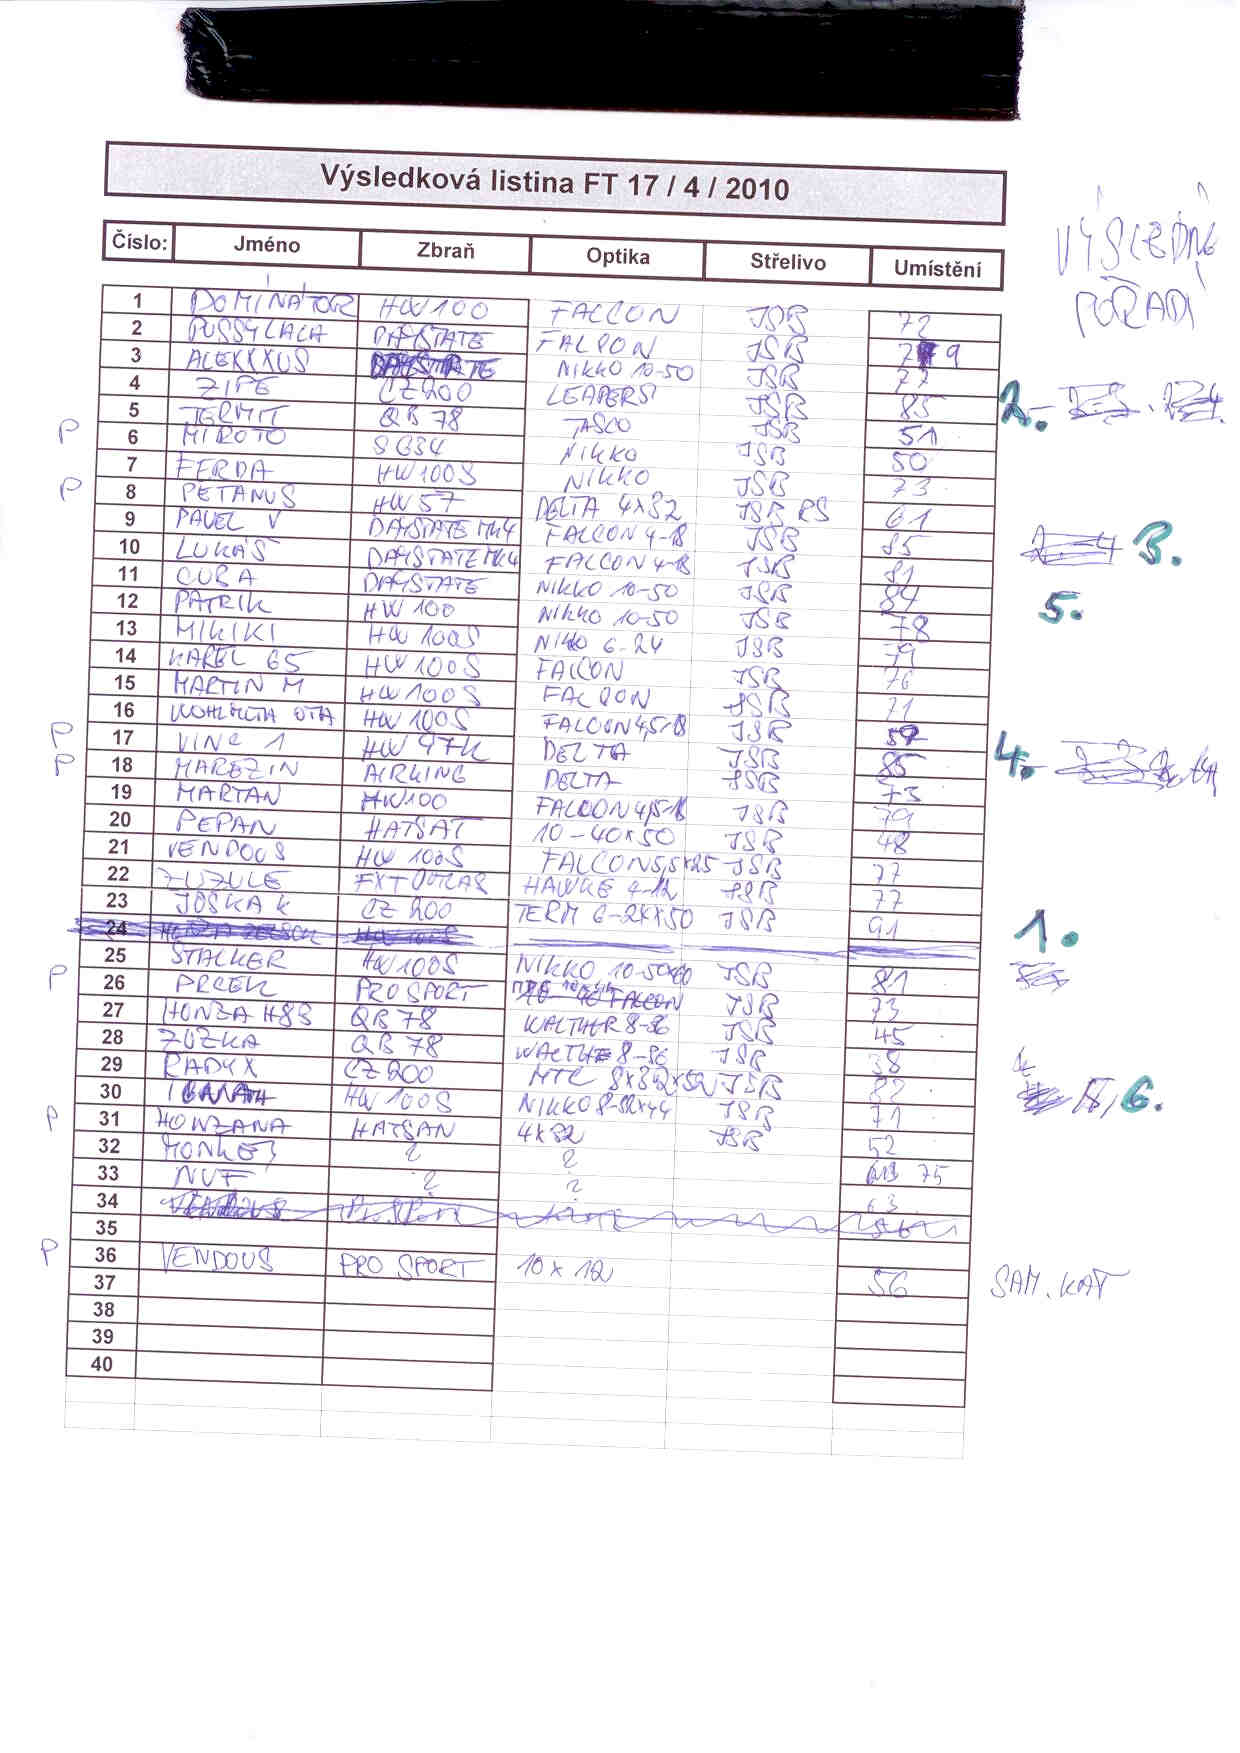 Výsledková listina FT 17 / 4 / 2010
VÝSLEDNÉ
POŘADÍ
Číslo: Jméno Zbraň Optika Střelivo Umístění
1 DOMINÁTOR HW 100 FALCON JSB 72
2 PUSSYLALA DAYSTATE FALCON JSB 79
3 ALEXXXUS DAYSTATE NIKKO 10-50 JSB 77
4 ZIPE CZ 200 LEAPERS JSB 85 2.
5 TERMIT QB 78 TASCO JSB 51
P 6 MIROTO SG34 NIKKO JSB 50
7 FERDA HW 100S NIKKO JSB 73
P 8 PETANUS HW 57 DELTA 4x32 JSB RS 61
9 PAVEL V DAYSTATE MK4 FALCON 4-18 JSB 85 3.
10 LUKÁŠ DAYSTATE MK4 FALCON 4-18 JSB 81
11 CUBA DAYSTATE NIKKO 10-50 JSB 84 5.
12 PATRIK HW 100 NIKKO 10-50 JSB 78
13 MIKIKI HW 100S NIKKO 6-24 JSB 79
14 KAREL 65 HW 100S FALCON JSB 76
15 MARTIN M HW 100S FALCON JSB 71
16 OTA HW 100S FALCON 4,5-18 JSB
P 17 VINC 1 HW 97K DELTA JSB 85 4.
P 18 MAREZIN AIRKING DELTA JSB 73
19 MARTAN HW100 FALCON 4,5-18 JSB 79
20 PEPAN HATSAT 10-40x50 JSB 48
21 VENDOUS HW 100S FALCON 5,5x25 JSB 77
22 ZUZULE FXT HAWKE 4-12 JSB 77
23 JOSKA K CZ 200 TERM 6-24x50 JSB 91 1.
24 HW 100S
25 STALKER HW 100S NIKKO 10-50x60 JSB 81
P 26 PRCEK PRO SPORT FALCON JSB 73
27 HONZA H83 QB 78 WALTHER 8-56 JSB 45
28 ZUZKA QB 78 WALTHE 8-56 JSB 38
29 RADYX CZ 200 MTC JSB 82 6.
30 HW 100S NIKKO 8-32x44 JSB 71
P 31 HONZANA HATSAN 4x32 JSB 52
32 MONKEJ ? ? 75
33 NUF ? ? 63
34
35
P 36 VENDOUS PRO SPORT 10x12 56 SAM. KAT
37
38
39
40